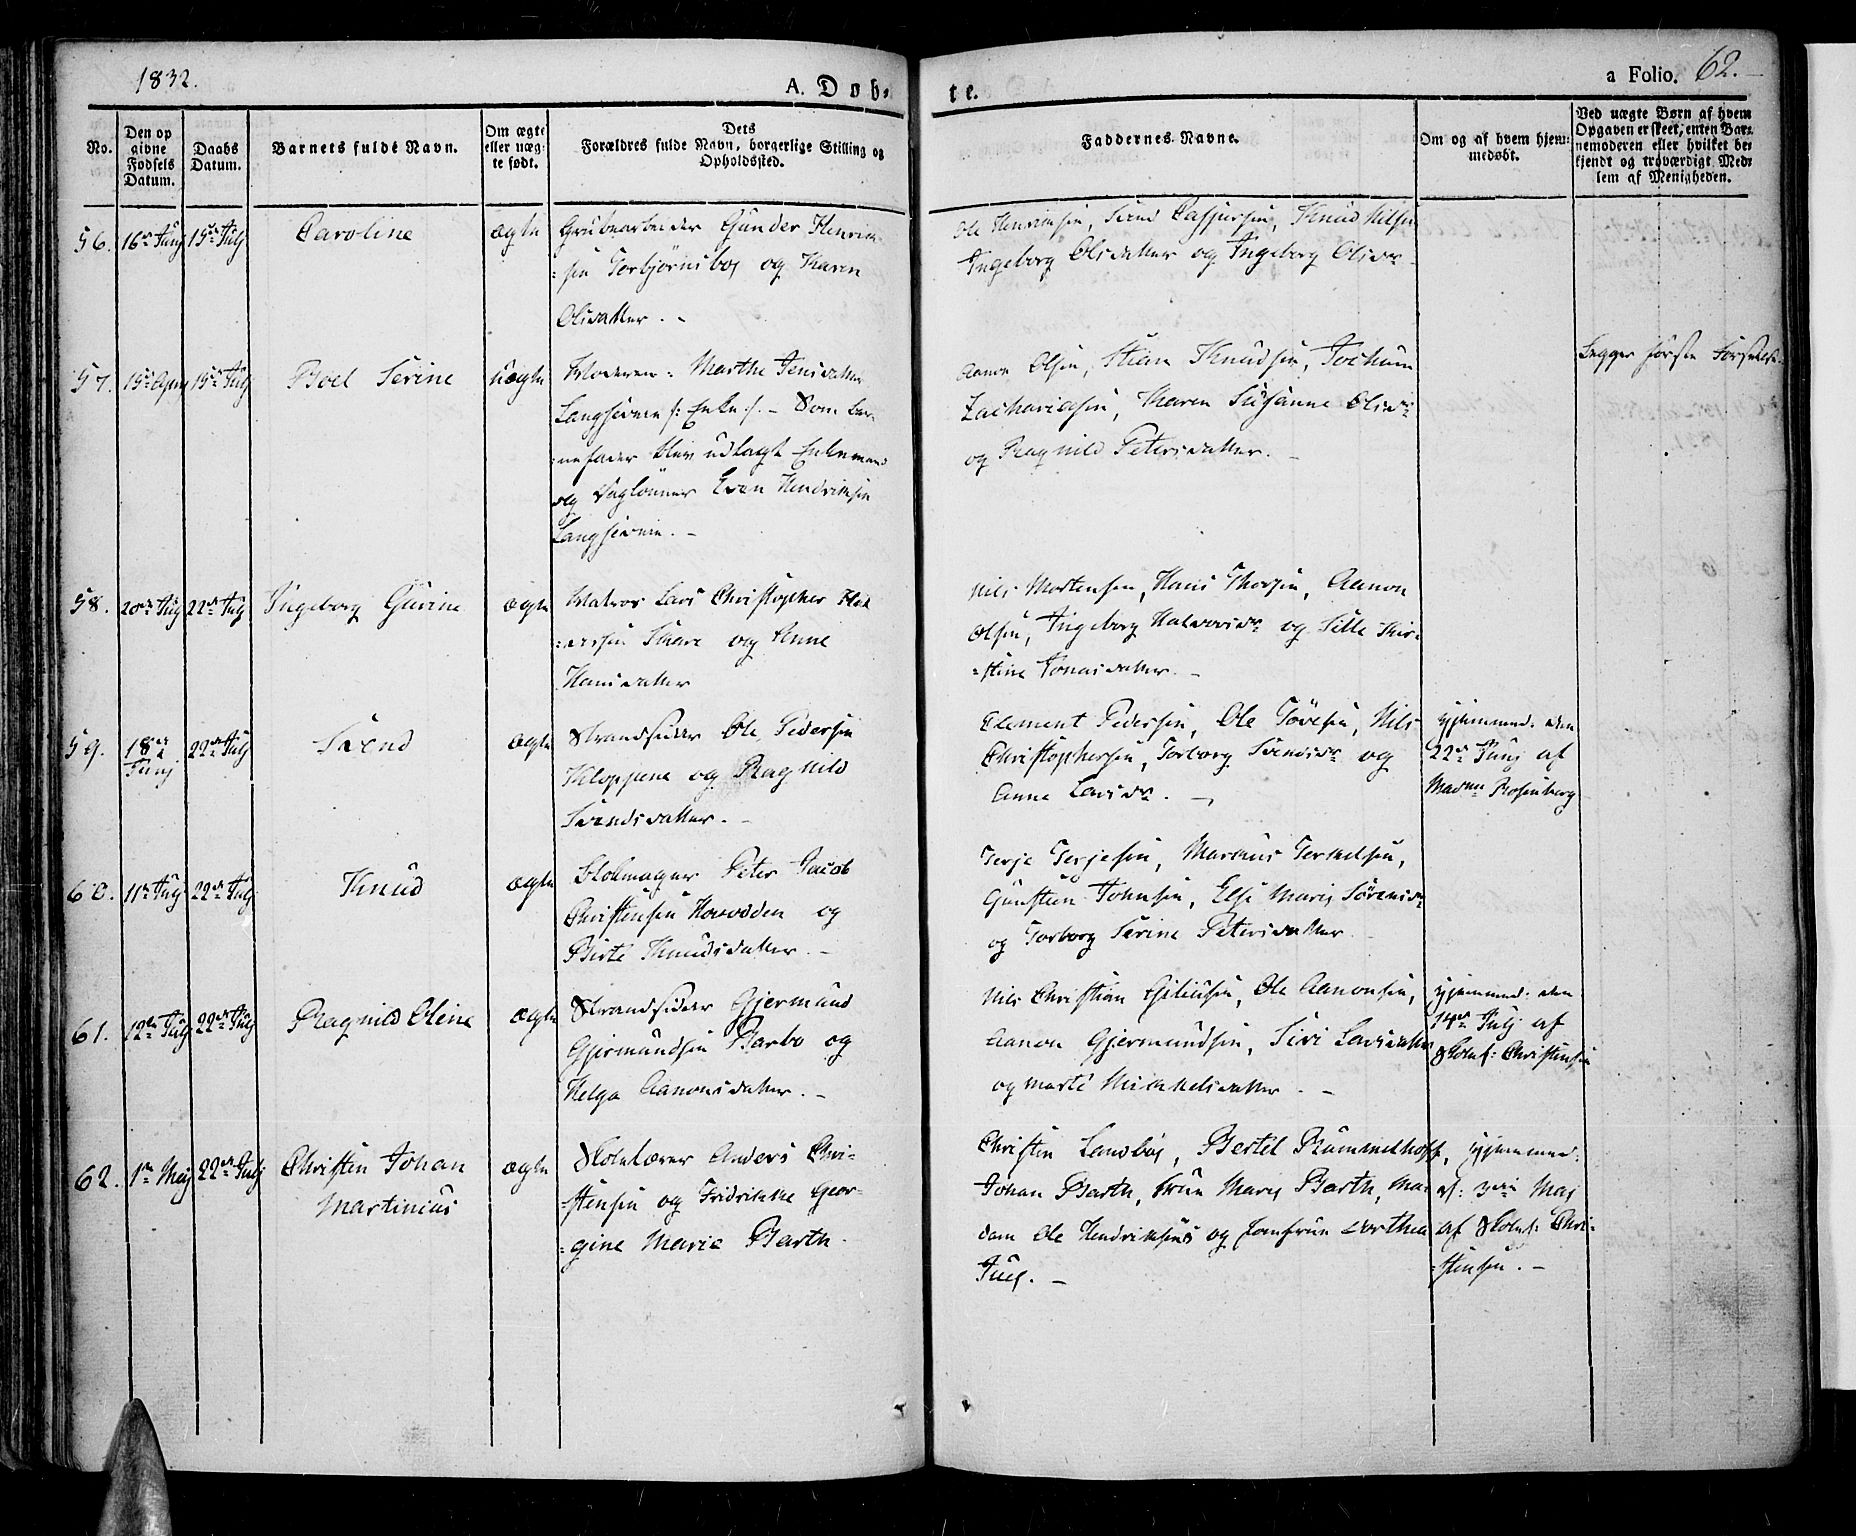 1832.
A. Døb-
te.
a Folio. 62.
No.
Den op
givne
Fødsels
Datum.
Daabs
Datum.
Barnets fulde Navn.
Om ægte
eller uæg-
te født.
Dets
Forældres fulde Navn, borgerlige Stilling og
Opholdssted.
Faddernes Navne.
Om og af hvem hjem-
medøbt.
Ved uægte Børn af hvem
Opgaven er skeet, enten Bar-
nemoderen eller hvilket be-
kjendt og troværdigt Med-
lem af Menigheden.
56. 16de Junj 15de Julj Caroline ægte
Grubearbeider Gunder Henrik-
sen Torbjørnsboe og Karen
Olsdatter. -
Ole Henriksen, Svend Caspersen, Knud Nilsen
Ingeborg Olsdatter og Ingeborg Olsdr
57. 15de April 15de Julj Boel Serine uægte
Moderen: Marthe Jensdatter
Langsæveie /: Enke :/ - Som bar-
nefader blev udlagt Enkemand
og Daglønner Even Hendriksen
Langsæveie. -
Aanon Olsen, Stian Knudsen, Jochum
Zachariasen, Karen Susanne Olsdr
og Ragnild Petersdatter. -
Begges første Forseelse.
58. 20de Julj 22de Julj Ingeborg Gurine ægte
Matros Lars Christopher
Skare og Anne
Hansdatter
Nils Mortensen, Hans Thorsen, Aanon
Olsen, Ingeborg Halvorsdr og Sille Kir-
stine Jonasdatter. -
59. 18de
Junj 22de Julj Svend ægte
Strandsidder Ole Pedersen
Kloppene og Ragnild
Svendsdatter. -
Clement Pedersen, Ole Tovesen, Nils
Christophersen, Torborg Svendsdr og
Anne Larsdr. -
hjemmed: den
22de Junj af
Madme Rosenberg
60. 11te Julj 22de Julj Knud ægte
Blokmager Peter Jacob
Christensen Havodden og
Birte Knudsdatter. -
Terje Terjesen, Markus Terkelsen,
Gunsteen Johnsen, Else Marie Sørensdr
og Torborg Serine Petersdatter
61. 12te Julj 22de Julj Ragnild Oline ægte
Strandsidder Gjermund
Gjermundsen Barbo og
Helga Aanonsdatter. -
Nils Christian Giliusen, Ole Aanonsen,
Aanon Gjermundsen, Siri Larsdatter
og Marte Mikkelsdatter. -
hjemmed: den
14de Julj af
Skolel: Christensen
62. 1te Maj 22de Julj Christen Johan
Martinius
ægte
Skolelærer Anders Chri-
stensen og Fridrikke Geor-
gine Marie Barth.
Christen Landbøe, Bertel Rummelhoff,
Johan Barth, Frue Marie Barth, Ma-
dam Ole Hendriksens og Jomfrue Dorthea
Juel. -
hjemmed:
d: 3die Maj
af Skolel: Chri-
stensen. -